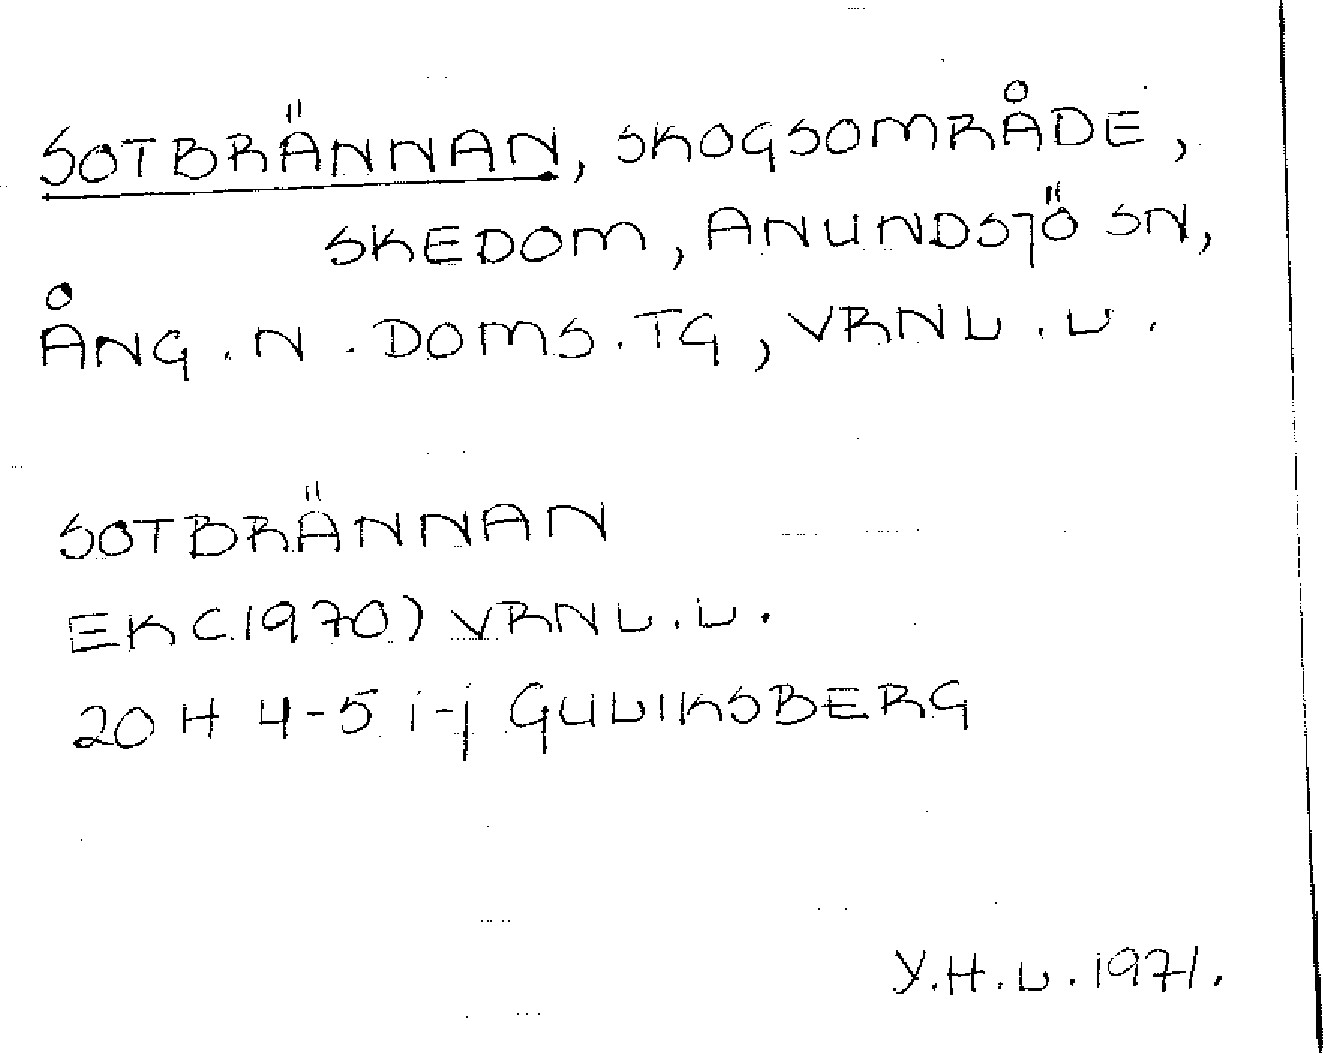 SOTBRÄNNAN, SKOGSOMRÅDE,
SKEDOM, ANUNDSJÖ SN,
ÅNG. N. DOMS. TG, VRNL. L.
SOTBRÄNNAN
EK (1970) VRNL. L.
20 H 4-5 i-j GULIKSBERG
Y.H.L. 1971.